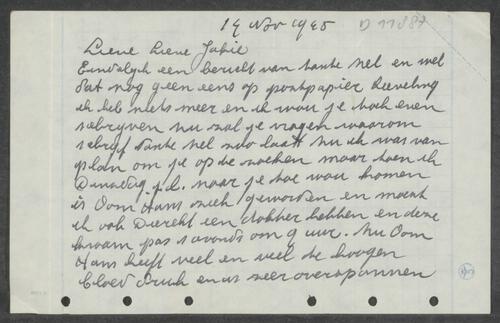 19 Nov 1945 D 11887
Lieve Lieve Jobie
Eindelyk een bericht van tante Nel en wel
dat nog geen eens op postpapier Lieveling
ik heb niets meer en ik wou je toch even
schryven nu zal je vragen waarom
schryf tante Nel zoo laat Nu ik was van
plan om je op te zoeken maar toen ik
Dinsdag j.l. naar je toe wou komen
is Oom Hans ziek geworden en moest
ik ook Direckt een dokter hebben en deze
kwam pas s avonds om 9 uur. Nu Oom
Hans heeft veel en veel te hoogen
bloed druk en is zeer overspannen